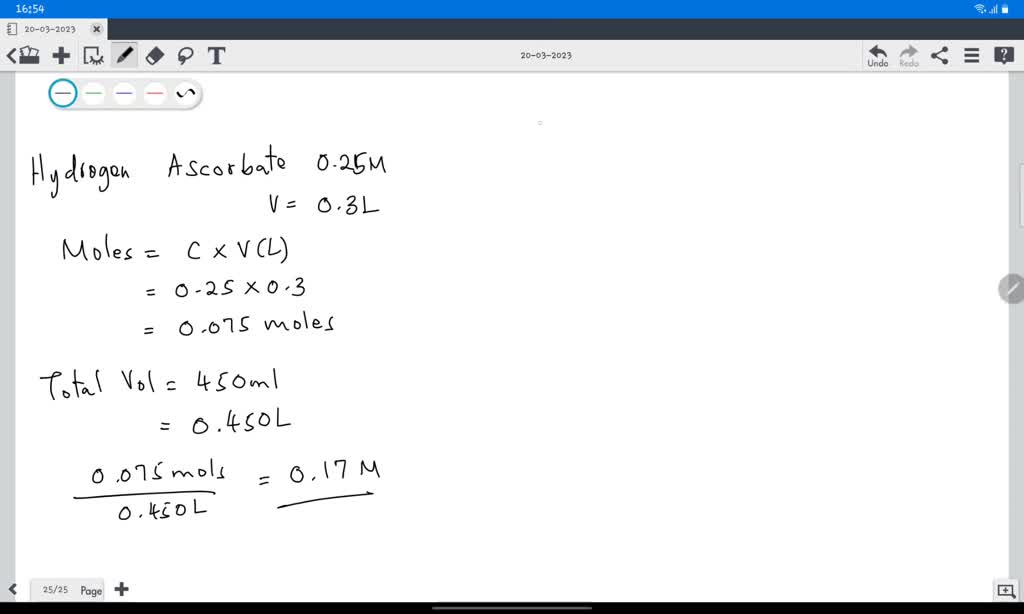 16:54
20-03-2023
T
20-03-2023
Undo
Redo
?
Hydrogen Ascorbate 0.25M
V = 0.3L
Moles = C x V(L)
= 0.25 x 0.3
= 0.075 moles
Total Vol = 450ml
= 0.450L
0.075 mols
= 0.17 M
0.450L
25/25 Page